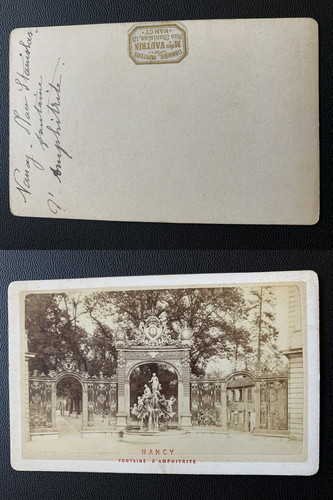 Nancy. Place Stanislas.
fontaine
d'Amphitrite.
LIBRAIRIE PAPETERIE
Mme VAUTRIN
Rue Stanislas, 13
NANCY
NANCY
FONTAINE D'AMPHITRITE